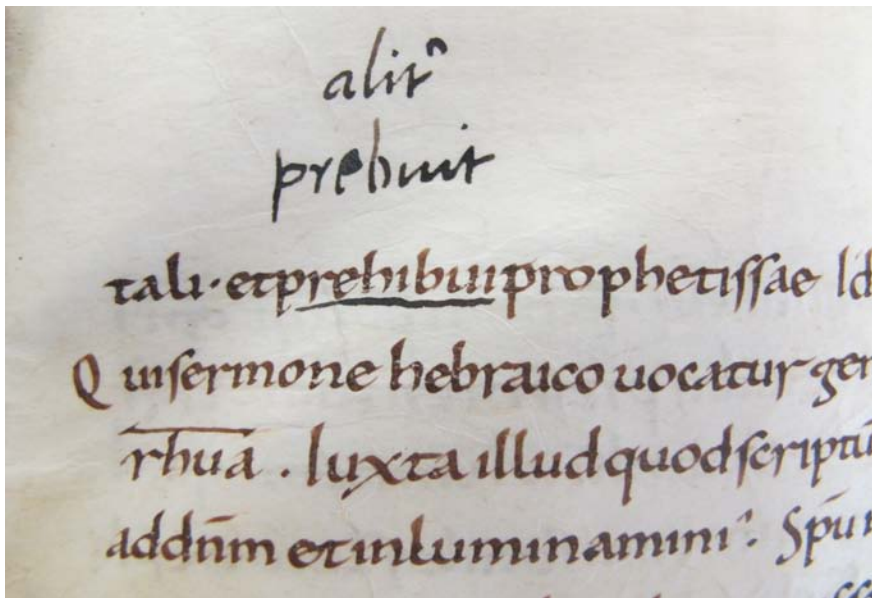 alit᷒
prebuit
tali · et prehibui prophetissae Id
Qui sermone hebraico uocatur ger
rhuā . Iuxta illud quod scriptū
ad dn̄m et inluminamini . Sp̄u